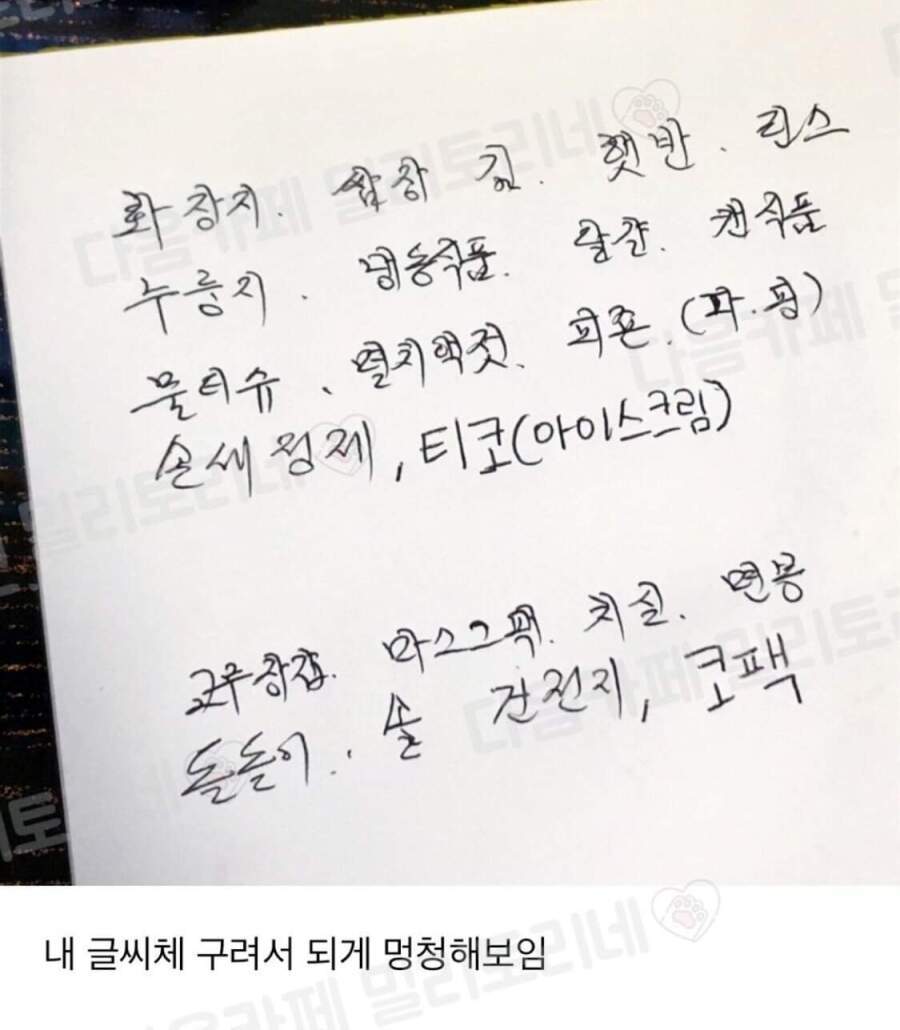 화장지. 쌈장 김. 햇반. 린스
누룽지. 냉동식품. 달걀. 캔식품
물티슈. 멸치액젓. 피죤. (파.핑)
손세정제, 티코(아이스크림)
고무장갑. 마스크팩. 치실. 면봉
돌돌이. 솔 건전지, 코팩
내 글씨체 구려서 되게 멍청해보임
다음카페 밀리토리네